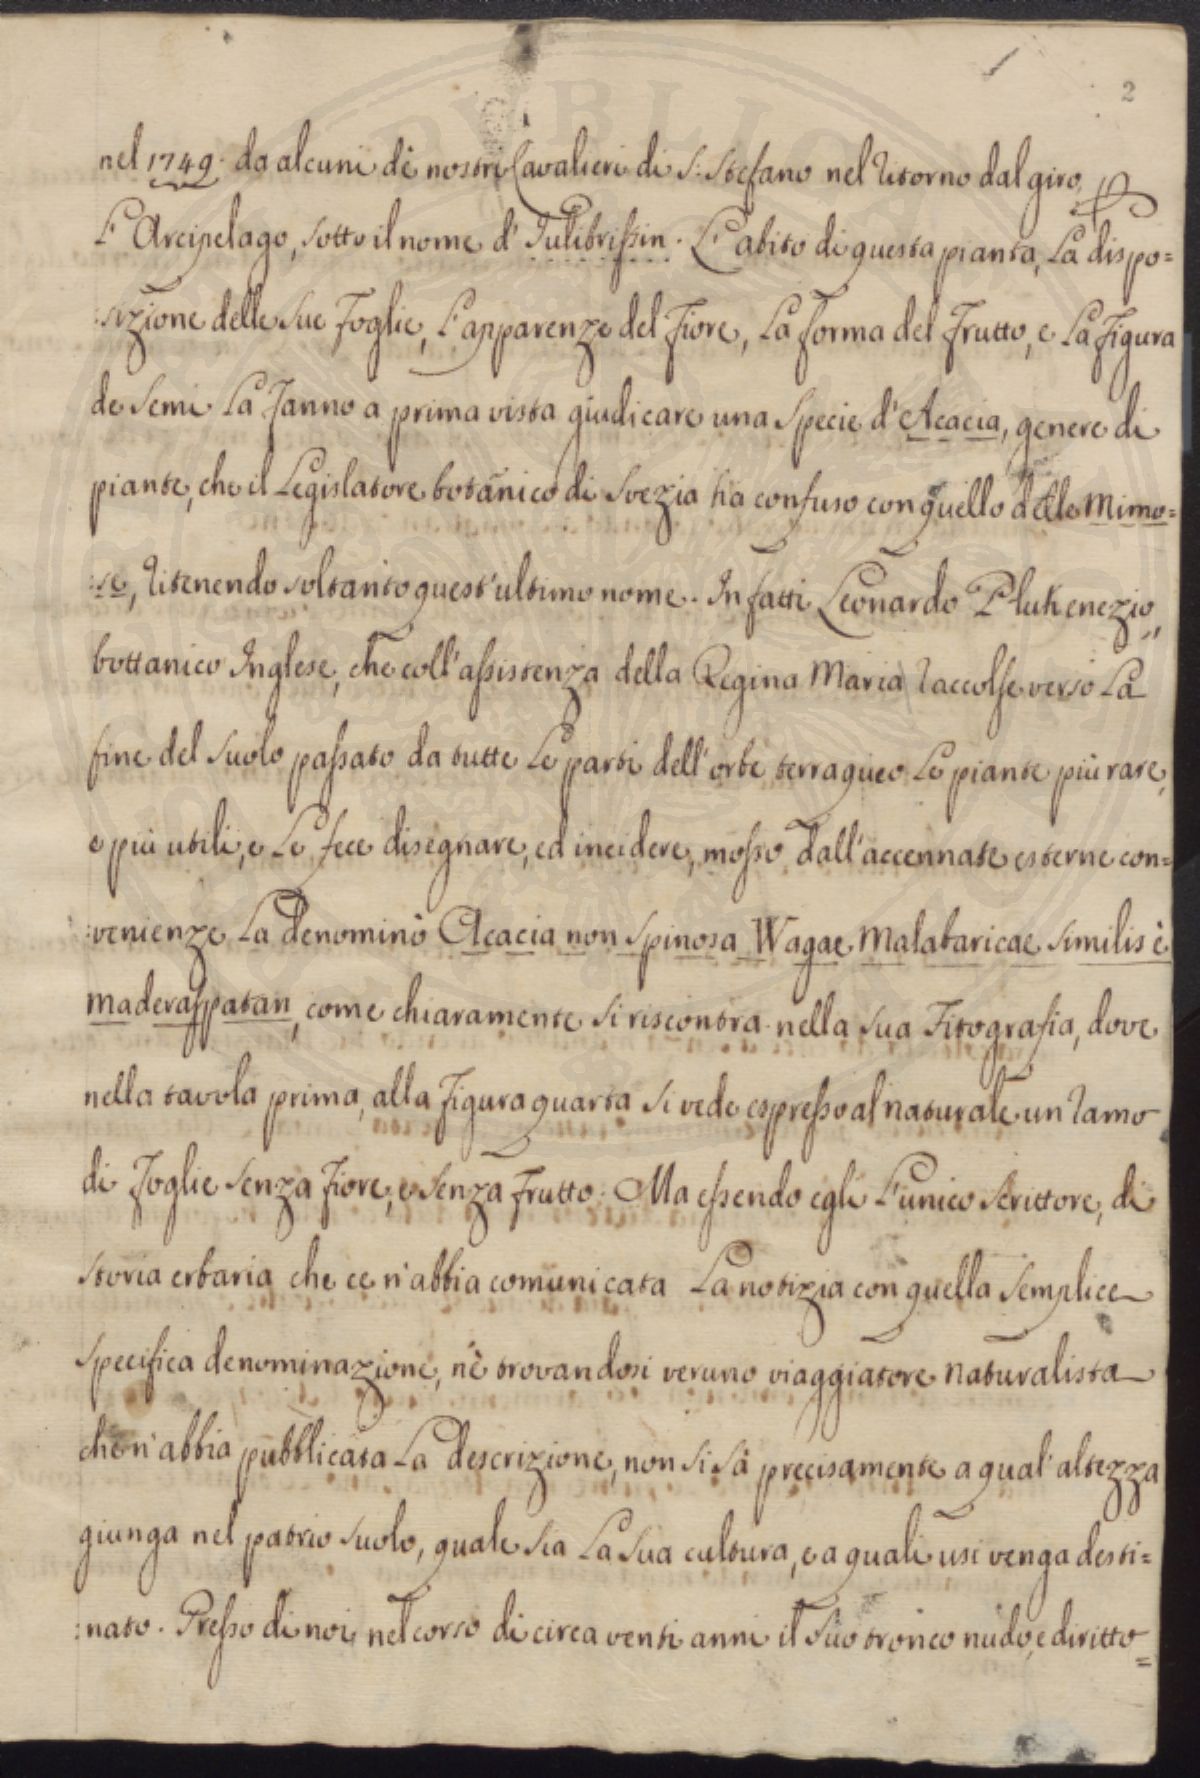 2
nel 1749. da alcuni dè nostri Cavalieri di S. Stefano nel ritorno dal giro
L'Arcipelago, sotto il nome d' Iulibrissin. L'abito di questa pianta, La dispo=
:sizione delle sue foglie, L'apparenze del Fiore, La forma del Frutto, e La Figura
de Semi La Fanno a prima vista giudicare una Specie d'Acacia, genere di
piante, che il Legislatore botanico di Svezia ha confuso con quello delle Mimo=
:se, ritenendo soltanto quest'ultimo nome. In fatti Leonardo Plukenezio,
bottanico Inglese, che coll'assistenza della Regina Maria raccolse verso La
fine del Suolo passato da tutte Le parti dell'orbe terraqueo Le piante più rare,
e più utili, e Le fece disegnare, ed incidere, mosso dall'accennate esterne con=
:venienze La denominò Acacia non Spinosa Wagae Malabaricae Similis è
maderaspatan, come chiaramente si riscontra nella sua Fitografia, dove
nella tavola prima, alla Figura quarta si vede espresso al naturale un ramo
di Foglie senza Fiore, e senza Frutto. Ma essendo egli L'unico Scrittore, di
storia erbaria che ce n'abbia comunicata La notizia con quella Semplice
Specifica denominazione, nè trovandosi veruno viaggiatore naturalista
che n'abbia pubblicata La descrizione, non si sà precisamente a qual'altezza
giunga nel patrio suolo, quale sia La Sua cultura, e a quali usi venga desti=
:nato. Presso di noi, nel corso di circa venti anni il Suo tronco nudo, e diritto=